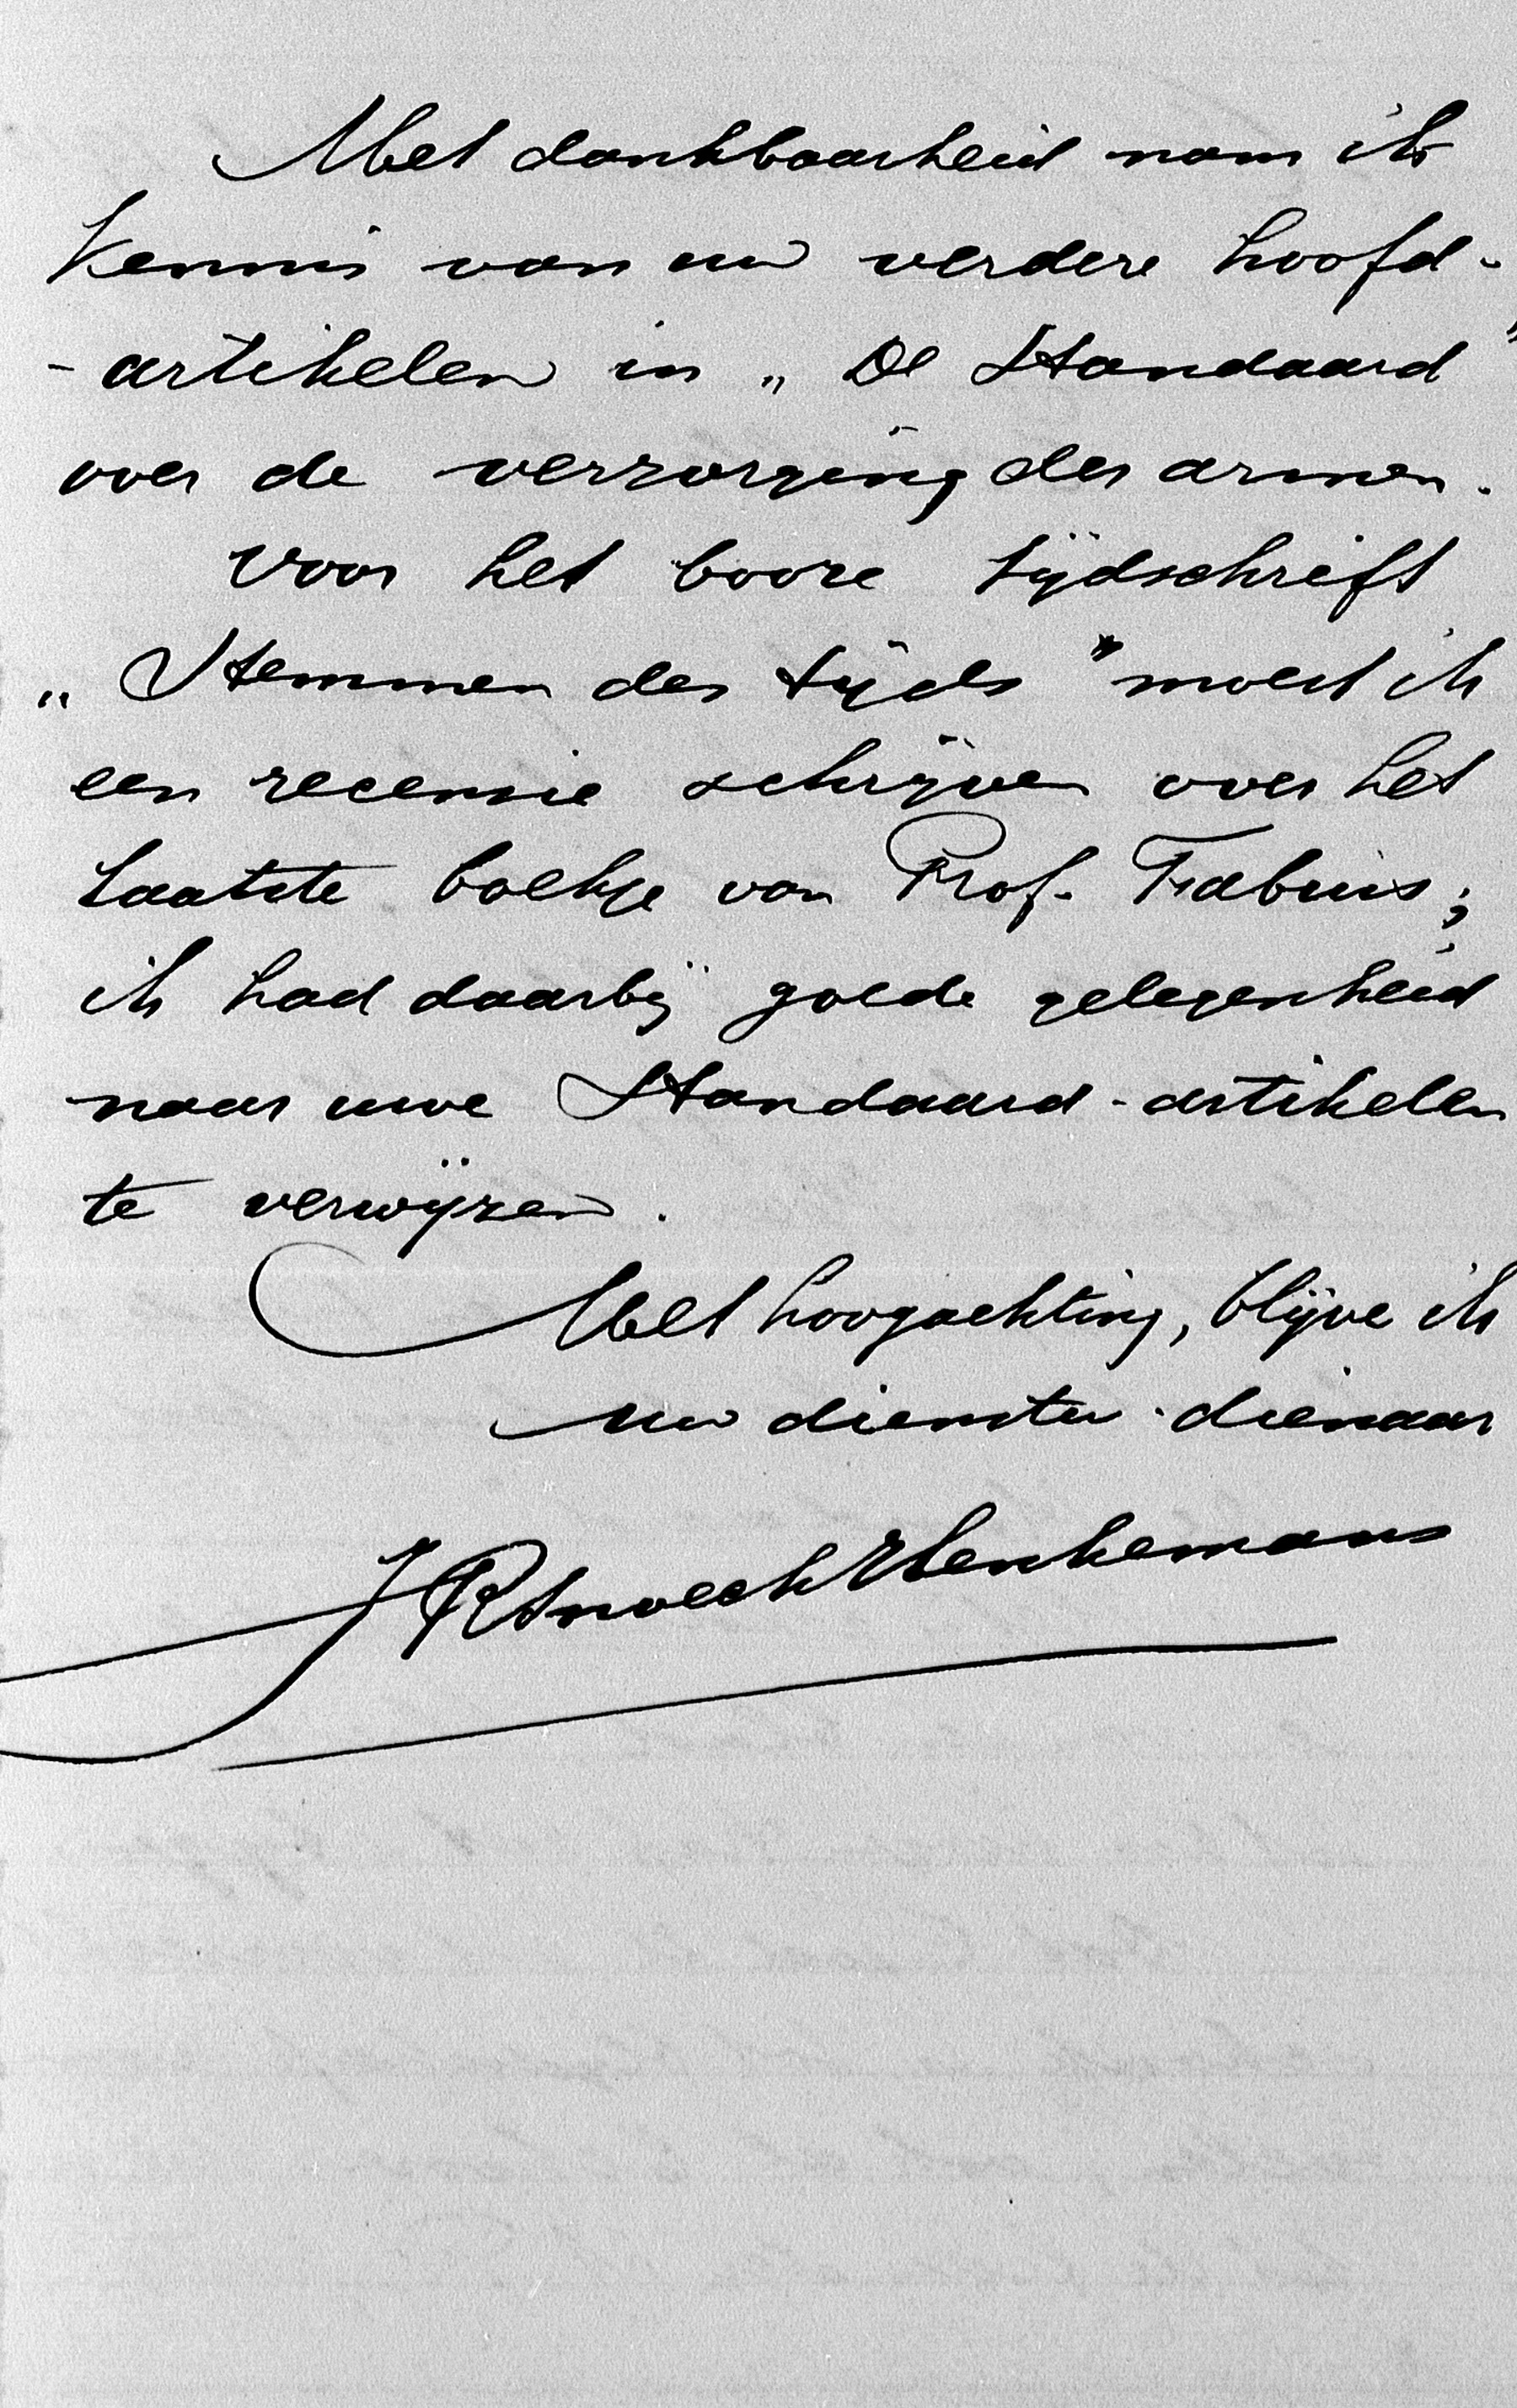 Met dankbaarheid nam ik
kennis van uw verdere hoofd-
-artikelen in „De Standaard"
over de verzorging der armen.
Voor het booze tijdschrift
„Stemmen des tijds" moest ik
een recensie schrijven over het
laatste boekje van Prof. Fabius;
ik had daarbij goede gelegenheid
naar uwe Standaard-artikelen
te verwijzen.
Met hoogachting, blijve ik
uw dienstw. dienaar
JRSnoeck Henkemans